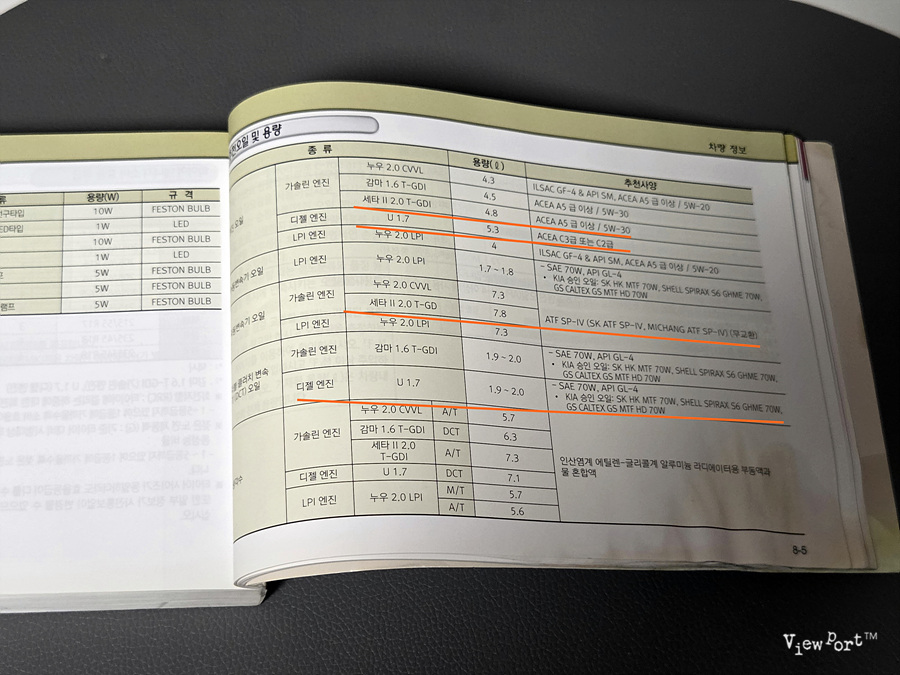 류 용량(W) 규 격
전구타입 10W FESTON BULB
ED타입 1W LED
10W FESTON BULB
1W LED
5W FESTON BULB
5W FESTON BULB
램프 5W FESTON BULB
오일 및 용량
차량 정보
종 류 용량(ℓ) 추천사양
오일 가솔린 엔진 누우 2.0 CVVL 4.3 ILSAC GF-4 & API SM, ACEA A5 급 이상 / 5W-20
감마 1.6 T-GDI 4.5 ACEA A5 급 이상 / 5W-30
세타 II 2.0 T-GDI 4.8 ACEA A5 급 이상 / 5W-30
디젤 엔진 U 1.7 5.3 ACEA C3급 또는 C2급
LPI 엔진 누우 2.0 LPI 4 ILSAC GF-4 & API SM, ACEA A5 급 이상 / 5W-20
변속기 오일 LPI 엔진 누우 2.0 LPI 1.7 ~ 1.8 - SAE 70W, API GL-4
• KIA 승인 오일: SK HK MTF 70W, SHELL SPIRAX S6 GHME 70W,
GS CALTEX GS MTF HD 70W
변속기 오일 가솔린 엔진 누우 2.0 CVVL 7.3 ATF SP-IV (SK ATF SP-IV, MICHANG ATF SP-IV) (무교환)
세타 II 2.0 T-GD 7.8
LPI 엔진 누우 2.0 LPI 7.3
클러치 변속
(DCT) 오일 가솔린 엔진 감마 1.6 T-GDI 1.9 ~ 2.0 - SAE 70W, API GL-4
• KIA 승인 오일: SK HK MTF 70W, SHELL SPIRAX S6 GHME 70W,
GS CALTEX GS MTF HD 70W
디젤 엔진 U 1.7 1.9 ~ 2.0 - SAE 70W, API GL-4
• KIA 승인 오일: SK HK MTF 70W, SHELL SPIRAX S6 GHME 70W,
GS CALTEX GS MTF HD 70W
각수 가솔린 엔진 누우 2.0 CVVL A/T 5.7 인산염계 에틸렌-글리콜계 알루미늄 라디에이터용 부동액과
물 혼합액
감마 1.6 T-GDI DCT 6.3
세타 II 2.0
T-GDI A/T 7.3
디젤 엔진 U 1.7 DCT 7.1
LPI 엔진 누우 2.0 LPI M/T 5.7
A/T 5.6
8-5
ViewPort™